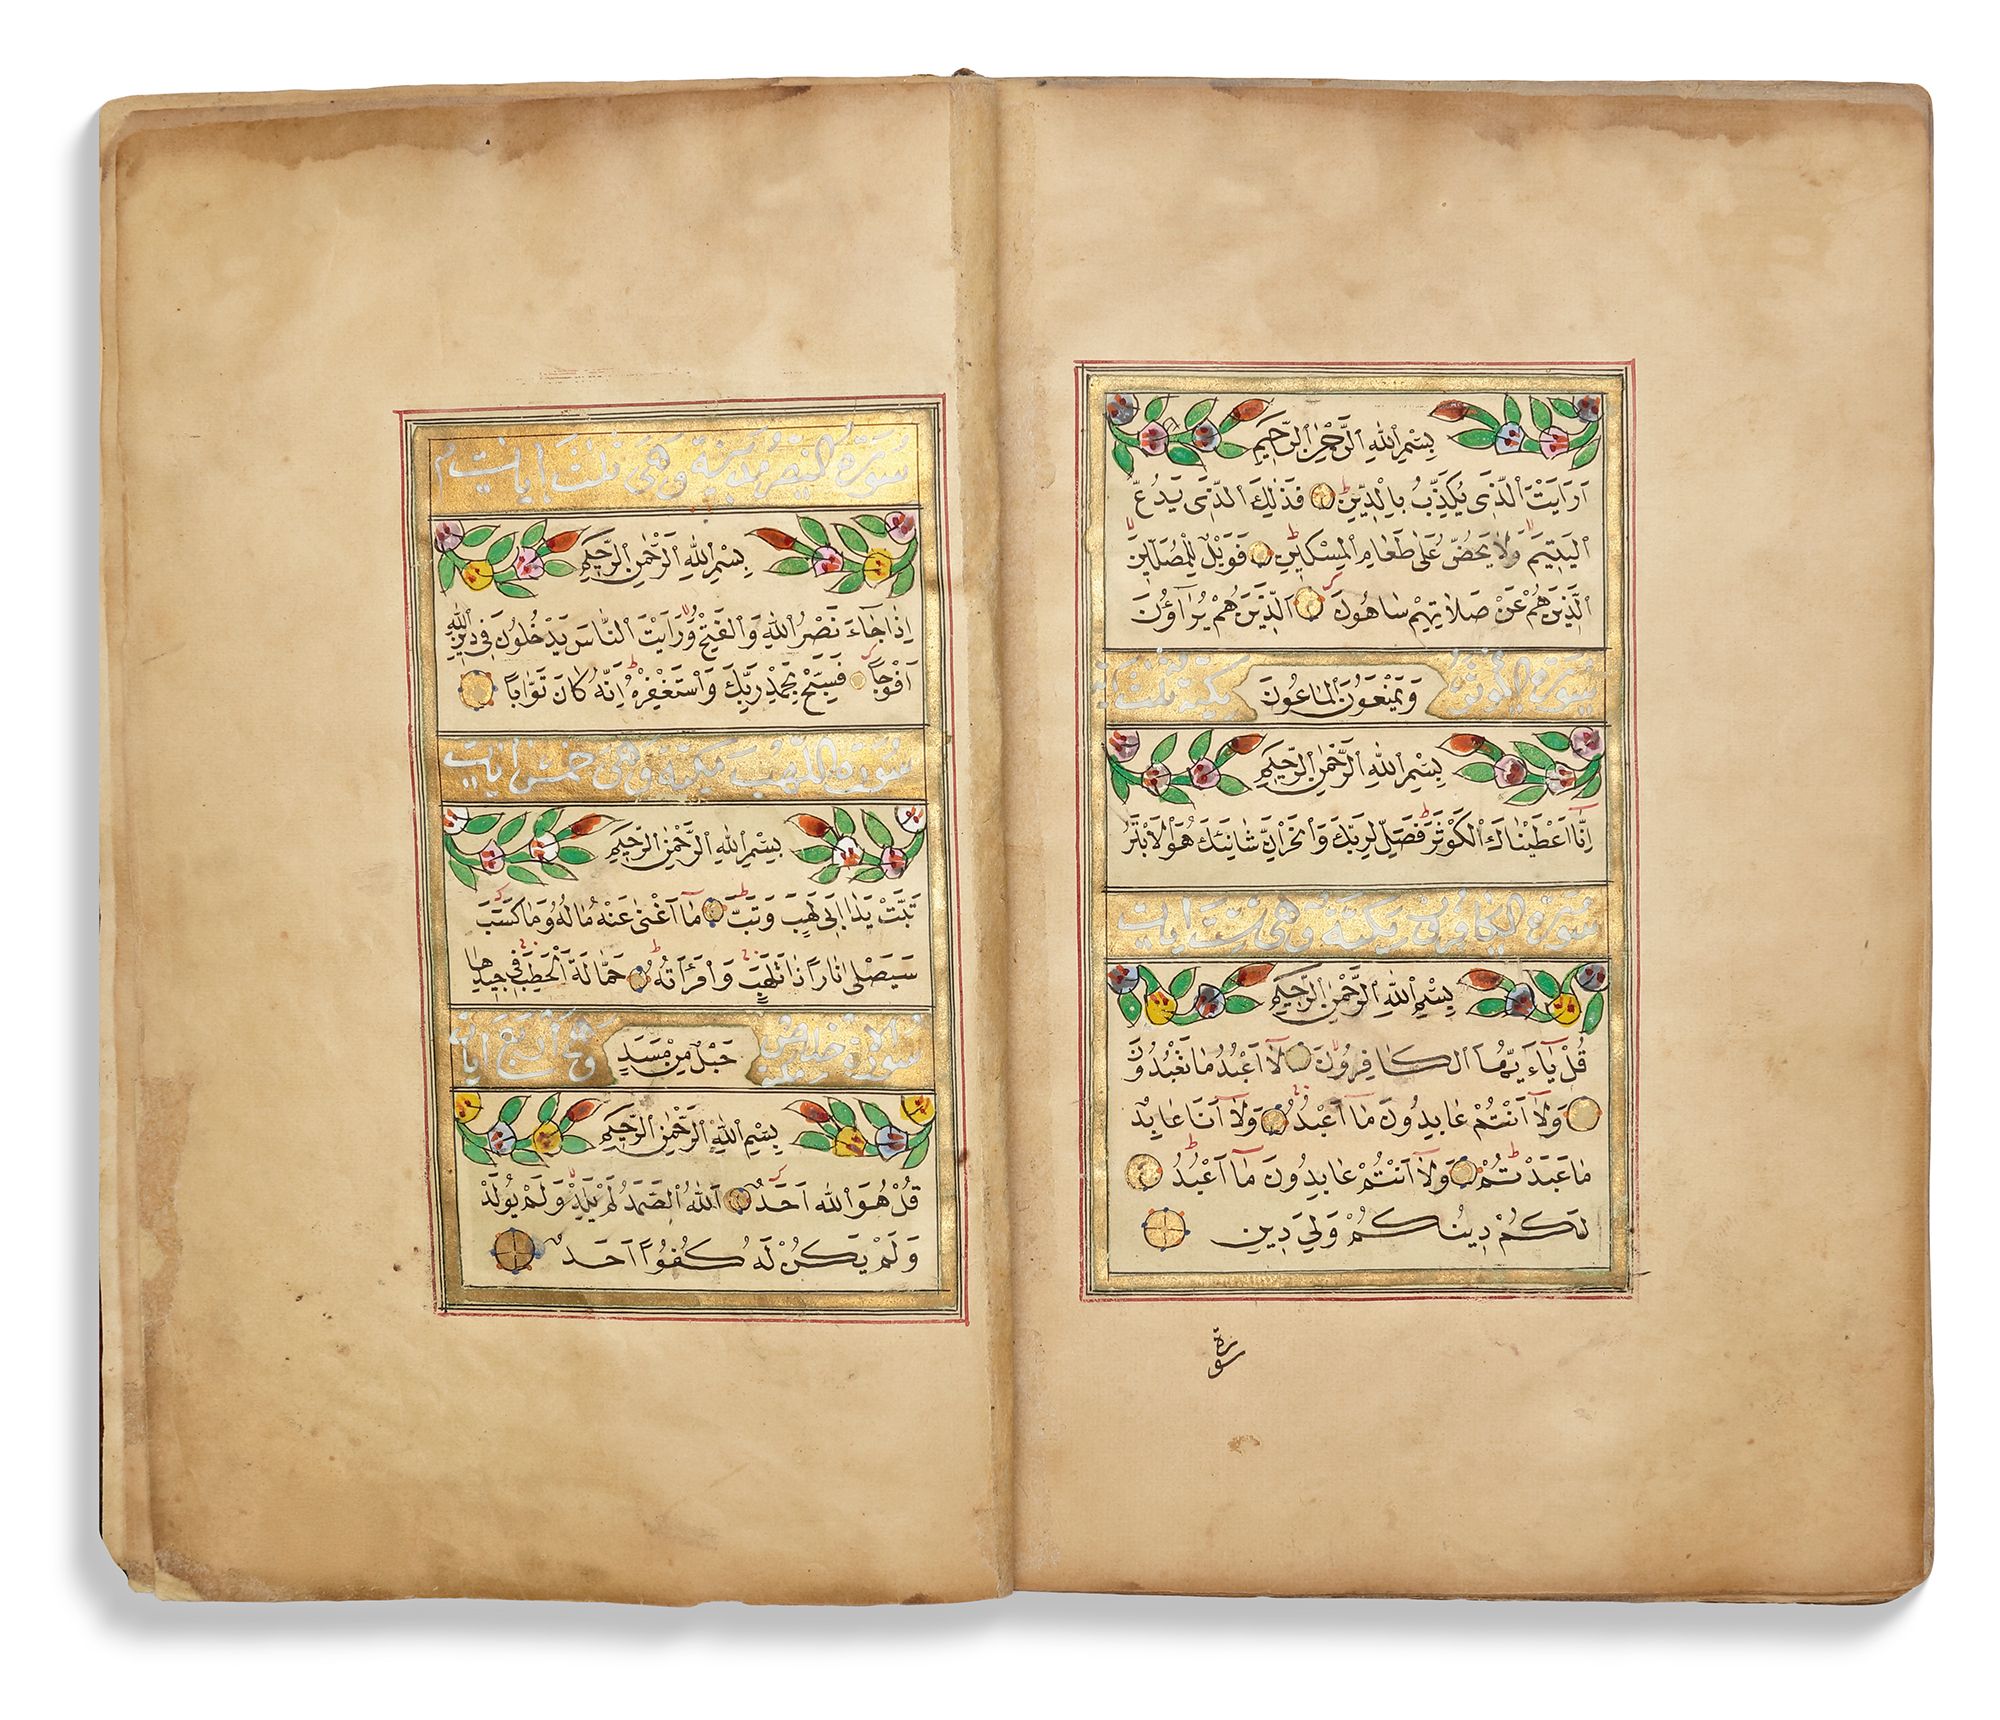 بِسْمِ اللهِ الرَّحْمٰنِ الرَّحِيمِ
اَرَاَيْتَ الَّذٖى يُكَذِّبُ بِالدّٖينِ فَذٰلِكَ الَّذٖى يَدُعُّ
الْيَتٖيمَ وَلَا يَحُضُّ عَلٰى طَعَامِ الْمِسْكٖينِ فَوَيْلٌ لِلْمُصَلّٖينَ
الَّذٖينَ هُمْ عَنْ صَلَاتِهِمْ سَاهُونَ الَّذٖينَ هُمْ يُرَاؤُنَ
سورة الكوثر وَيَمْنَعُونَ الْمَاعُونَ مكية ثلث اية
بِسْمِ اللهِ الرَّحْمٰنِ الرَّحِيمِ
اِنَّا اَعْطَيْنَاكَ الْكَوْثَرَ فَصَلِّ لِرَبِّكَ وَانْحَرْ اِنَّ شَانِئَكَ هُوَ الْاَبْتَرُ
سورة الكافرون مكية وهى ست ايات
بِسْمِ اللهِ الرَّحْمٰنِ الرَّحِيمِ
قُلْ يَاءَيُّهَا الْكَافِرُونَ لَا اَعْبُدُ مَا تَعْبُدُونَ
وَلَا اَنْتُمْ عَابِدُونَ مَا اَعْبُدُ وَلَا اَنَا عَابِدٌ
مَا عَبَدْتُمْ وَلَا اَنْتُمْ عَابِدُونَ مَا اَعْبُدُ
لَكُمْ دِينُكُمْ وَلِيَ دِينِ
سورة
سورة النصر مدنية وهى ثلث ايات
بِسْمِ اللهِ الرَّحْمٰنِ الرَّحِيمِ
اِذَا جَاءَ نَصْرُ اللهِ وَالْفَتْحُ وَرَاَيْتَ النَّاسَ يَدْخُلُونَ فِى دِينِ اللهِ
اَفْوَاجًا فَسَبِّحْ بِحَمْدِ رَبِّكَ وَاسْتَغْفِرْهُ اِنَّهُ كَانَ تَوَّابًا
سورة اللهب مكية وهى خمس ايات
بِسْمِ اللهِ الرَّحْمٰنِ الرَّحِيمِ
تَبَّتْ يَدَا اَبِى لَهَبٍ وَتَبَّ مَا اَغْنٰى عَنْهُ مَالُهُ وَمَا كَسَبَ
سَيَصْلٰى نَارًا ذَاتَ لَهَبٍ وَامْرَاَتُهُ حَمَّالَةَ الْحَطَبِ فِى جِيدِهَا
سورة الاخلاص مكية حَبْلٌ مِنْ مَسَدٍ وهى اربع ايات
بِسْمِ اللهِ الرَّحْمٰنِ الرَّحِيمِ
قُلْ هُوَ اللهُ اَحَدٌ اَللهُ الصَّمَدُ لَمْ يَلِدْ وَلَمْ يُولَدْ
وَلَمْ يَكُنْ لَهُ كُفُوًا اَحَدٌ